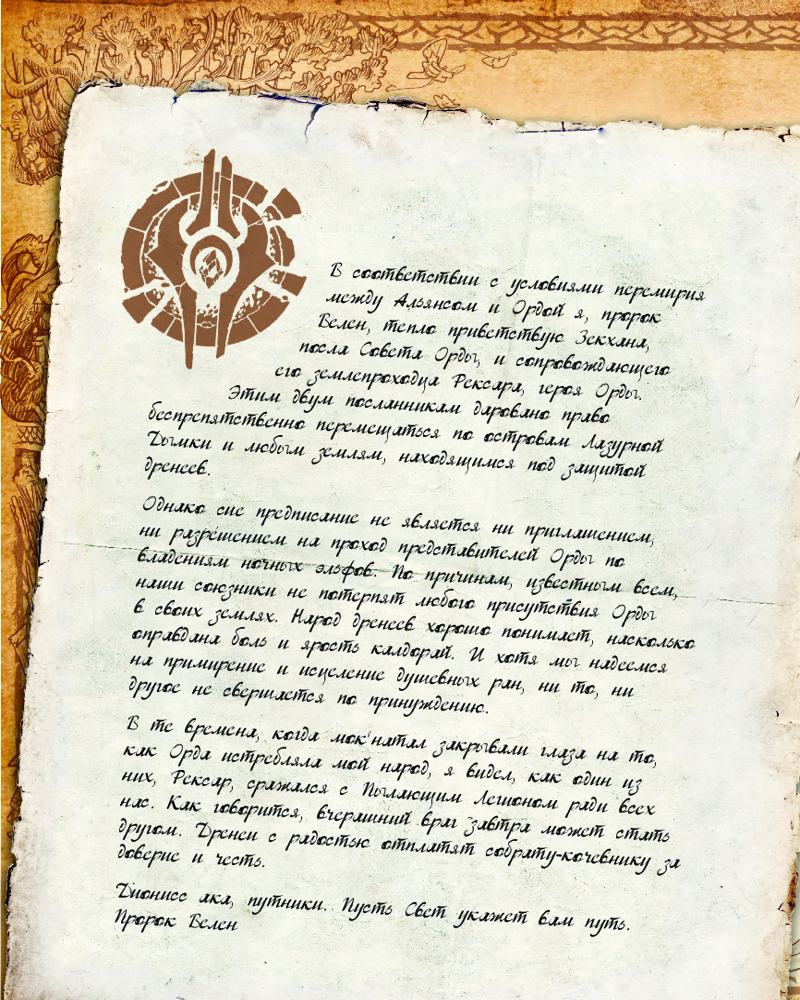 В соответствии с условиями перемирия
между Альянсом и Ордой я, пророк
Велен, тепло приветствую Зекхана,
посла Совета Орды, и сопровождающего
его землепроходца Рексара, героя Орды.
Этим двум посланникам даровано право
беспрепятственно перемещаться по островам Лазурной
Дымки и любым землям, находящимся под защитой
дренеев.
Однако сие предписание не является ни приглашением,
ни разрешением на проход представителей Орды по
владениям ночных эльфов. По причинам, известным всем,
наши союзники не потерпят любого присутствия Орды
в своих землях. Народ дренеев хорошо понимает, насколько
оправдана боль и ярость калдорай. И хотя мы надеемся
на примирение и исцеление душевных ран, ни то, ни
другое не свершается по принуждению.
В те времена, когда мок'натал закрывали глаза на то,
как Орда истребляла мой народ, я видел, как один из
них, Рексар, сражался с Пылающим Легионом ради всех
нас. Как говорится, вчерашний враг завтра может стать
другом. Дренеи с радостью отплатят собрату-кочевнику за
доверие и честь.
Дионисс ака, путники. Пусть Свет укажет вам путь.
Пророк Велен